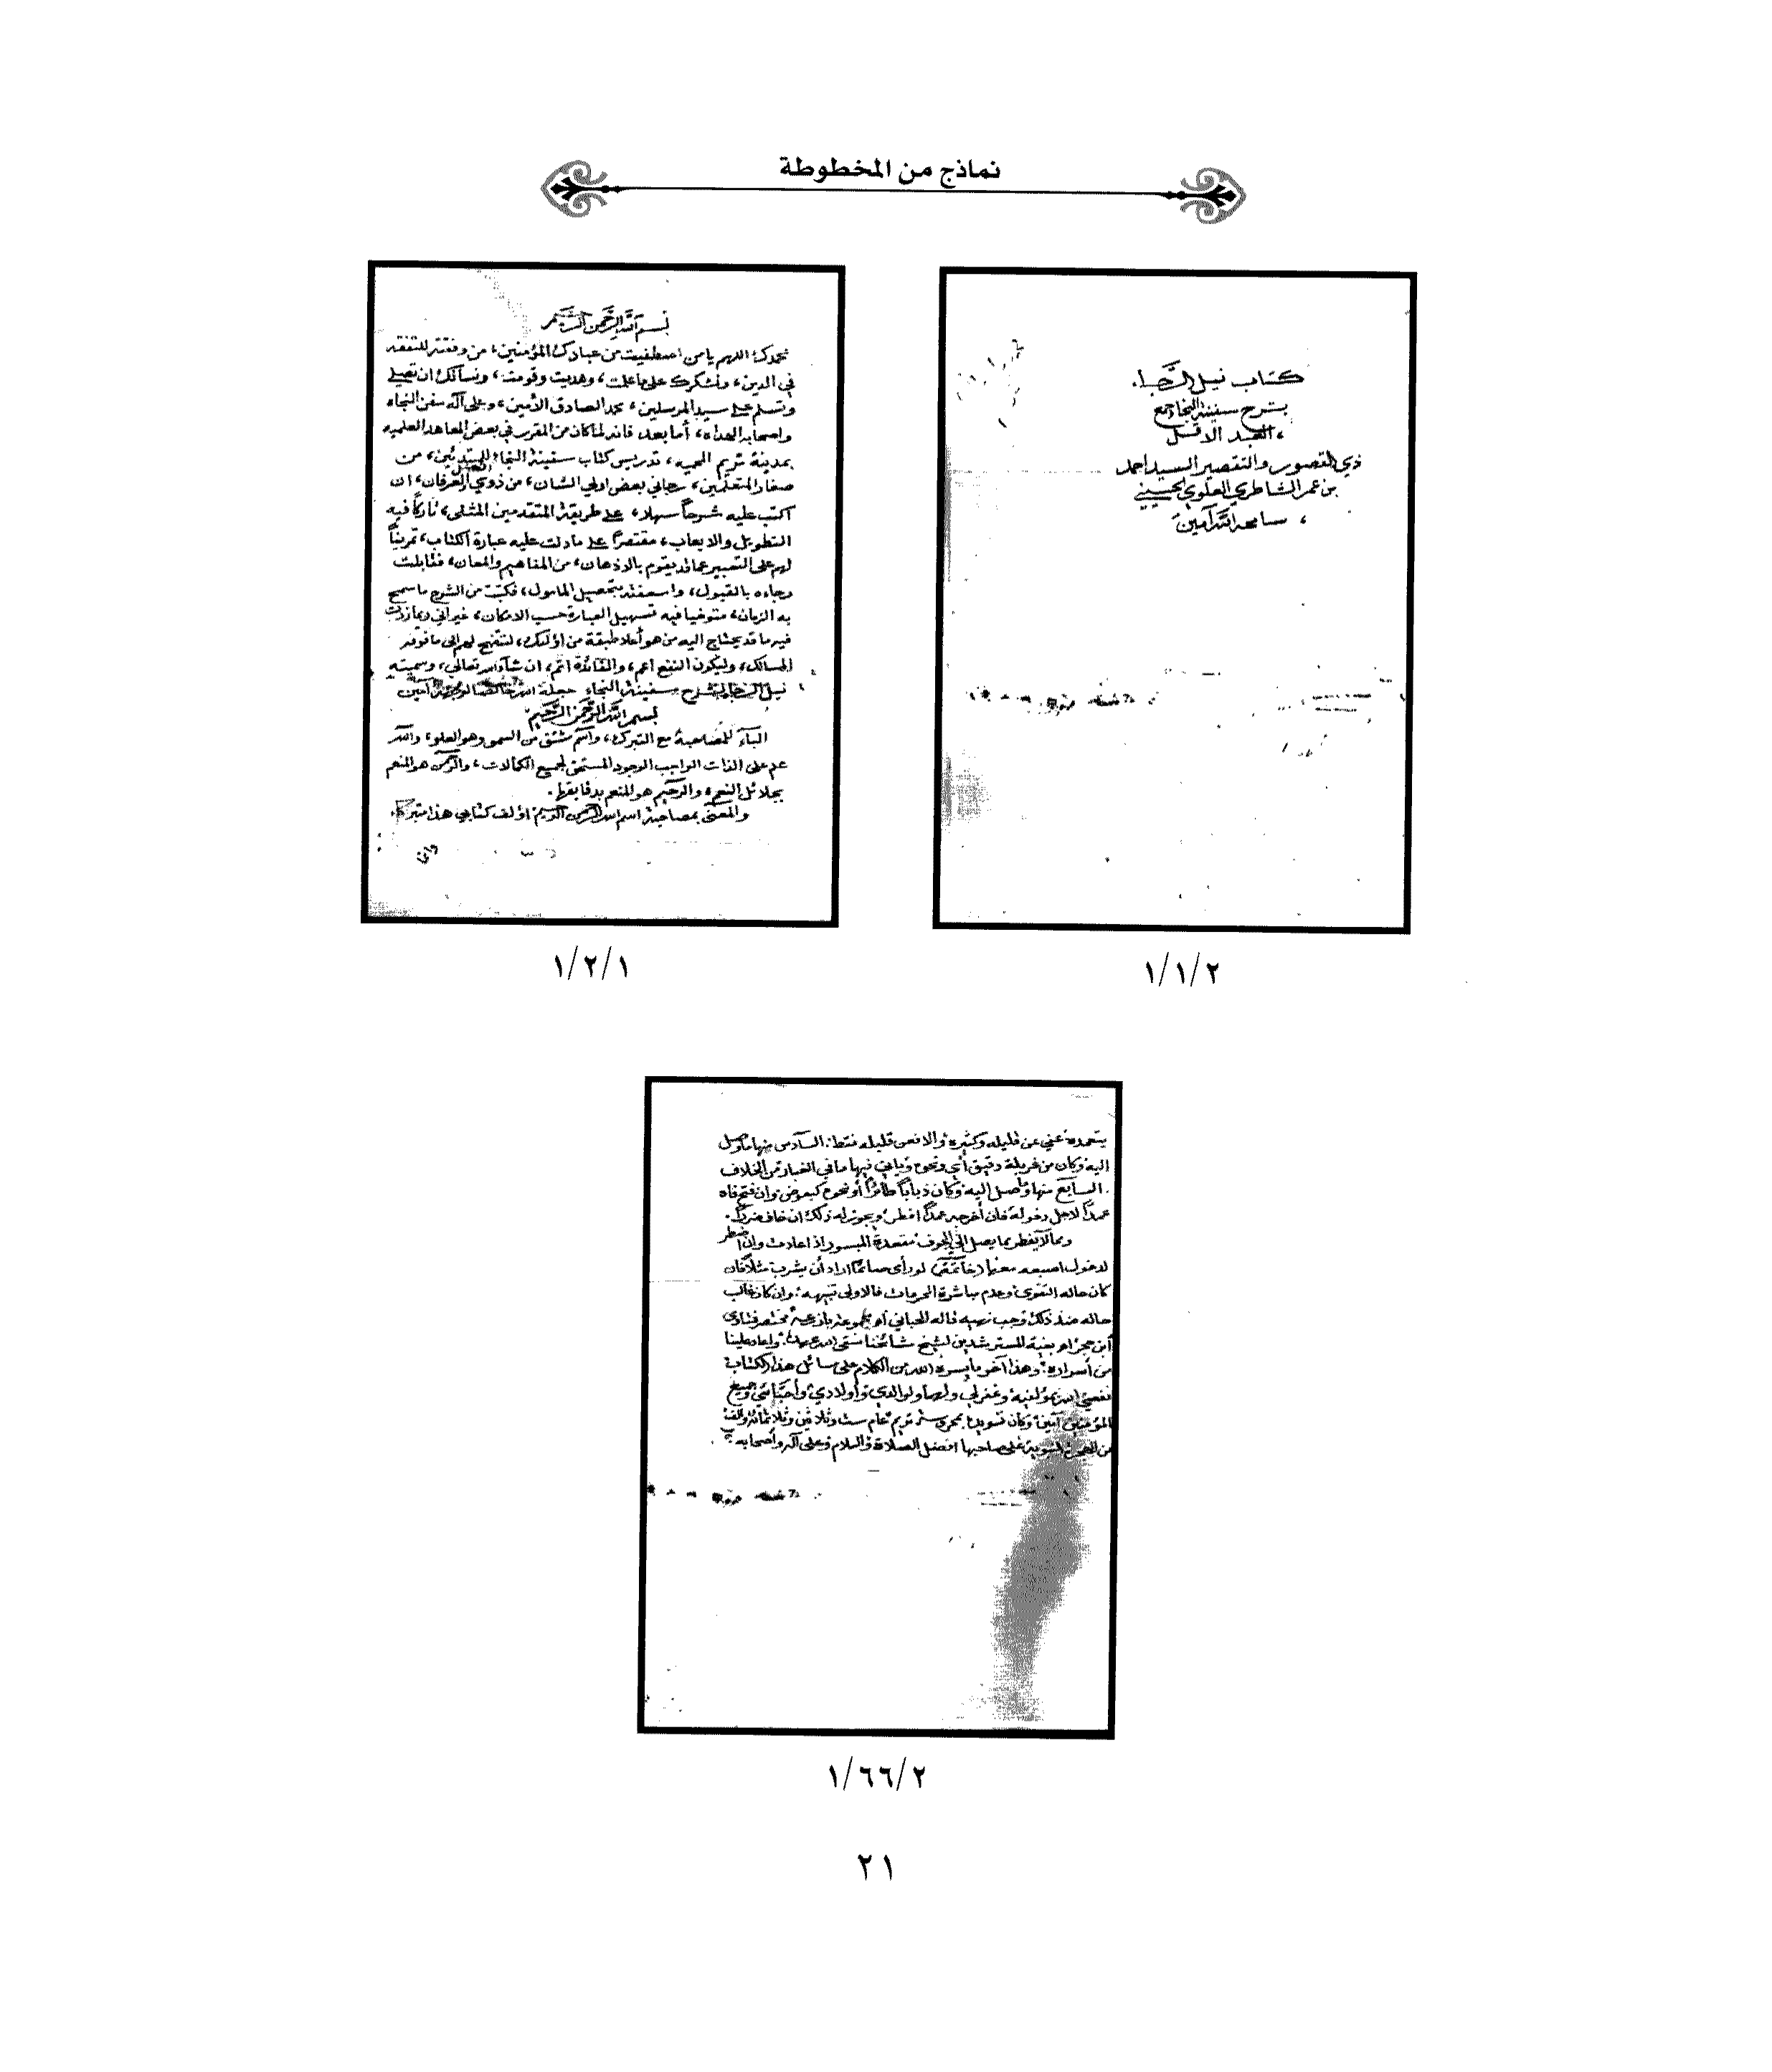 نماذج من المخطوطة
كتاب نيل الرجا.
بشرح سفينة النجا جمع
العبد الاقل
ذي القصور والتقصير السيد احمد
بن عمر الشاطري العلوي الحسيني
، سامحه الله آمين
١/١/٢
بسم الله الرحمن الرحيم
نحمدك اللهم يا من اصطفيت من عبادك المؤمنين، من وفقته للتفقه
في الدين، ونشكرك على ما علمت، وهديت وقومت، ونسألك ان تصلي
وتسلم على سيد المرسلين، محمد الصادق الأمين، وعلى آله سفن النجاه
واصحابه الهداه، أما بعد فانه لما كان من المقرر في بعض المعاهد العلميه
بمدينة تريم المحميه، تدريس كتاب سفينة النجاء للمبتدئين، من
صغار المتعلمين، رجاني بعض اولي الشان، من ذوي العرفان، ان
اكتب عليه شرحاً سهلا، على طريقة المتقدمين المثلى، تاركاً فيه
التطويل والايعاب، مقتصراً على ما دلت عليه عبارة الكتاب، تمريناً
لهم على التعبير عما قد يقوم بالاذهان، من المفاهيم والمعان، فقابلت
رجاءه بالقبول، واسعفته بتحصيل المامول، فكتبت من الشرح ما سمح
به الزمان، متوخيا فيه تسهيل العبارة حسب الامكان، غير اني ربما زدت
فيه ما قد يحتاج اليه من هو أعلا طبقة من اؤلئك، لتتضح لهم الى ما فوقه
المسالك، وليكون النفع اعم، والفائدة اتم، ان شاء الله تعالى، وسميته
نيل الرجا بشرح سفينة النجاء جعله الله خالصا لوجهه آمين
بسم الله الرحمن الرحيم
الباء للمصاحبة مع التبرك، واسم مشتق من السمو وهو العلو، والله
علم على الذات الواجب الوجود المستحق لجميع الكمالات، والرحمن هو المنعم
بجلائل النعم، والرحيم هو المنعم بدقايقها.
والمعنى بمصاحبة اسم الله الرحمن الرحيم اؤلف كتابي هذا متبركا،
١/٢/١
يتعمده عفي عن قليله وكثيره والا فعن قليله فقط: السادس منها ما وصل
اليه وكان من غربلة دقيق أي ونحوه وياتي فيها ما في الغبار من الخلاف
. السابع منها ما وصل إليه وكان ذباباً طائراً أو نحوه كبعوض وان فتح فاه
عمداً لاجل دخوله فان أخرجه عمداً افطر، ويجوز له ذلك ان خاف ضرراً.
ومما لا يفطر بما يصل إلى الجوف مقعدة المبسور اذا عادت وان اضطر
لدخول اصبعه معها (خاتمة) لو رأى صائما اراد أن يشرب مثلا فان
كان حاله التقوى وعدم مباشرة المحرمات فالاولى تنبيهه، وان كان غالب
حاله ضد ذلك وجب نهيه قاله الحباني اه مختصر فتاوى
ابن حجر اه بغية المسترشدين لشيخ مشائخنا
من أسراره، وهذا آخر ما يسره الله من الكلام على مسائل هذا الكتاب
نفعني الله بمؤلفيه وغفر لي ولهما ولوالدي وأولادي وأحبائي وجميع
المؤمنين آمين وكان تسويده بمحروسة تريم عام ست وثلاثين وثلاثمائة والف
من الهجرة النبوية على صاحبها افضل الصلاة والسلام وعلى آله وأصحابه
١/٦٦/٢
٢١